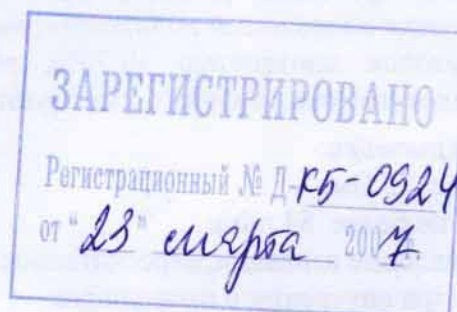 ЗАРЕГИСТРИРОВАНО
Регистрационный № Д-КБ-0924
от "23" марта 2007 г.